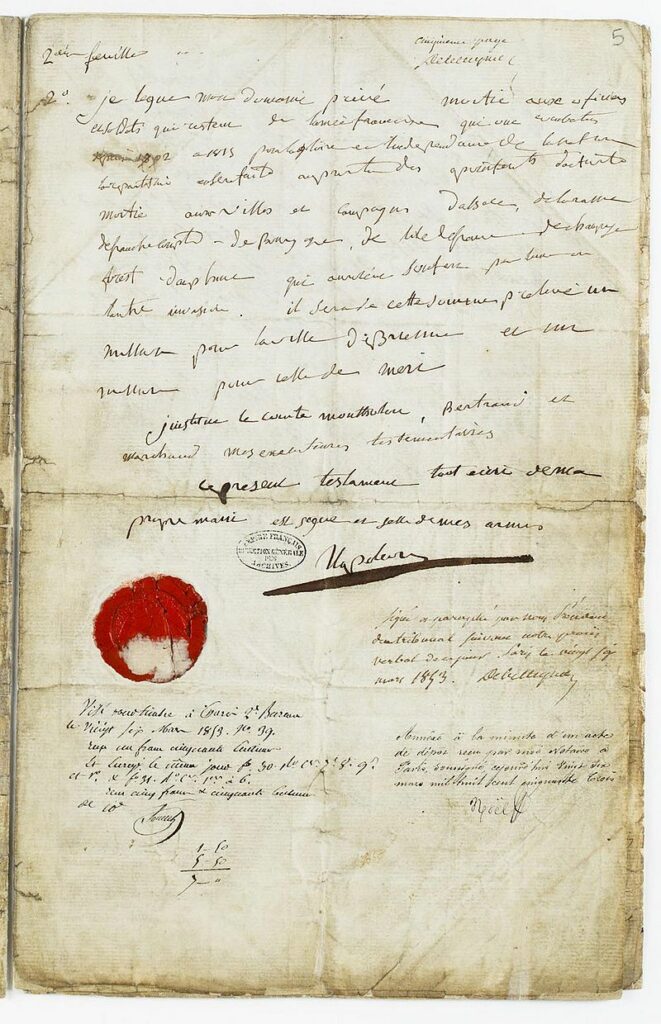 5
cinquieme page
2eme feuille
2º. je legue mon domaine privé moitié aux officiers
et soldats qui restent de l'armée francaise qui ont combattu
depuis 1792 a 1815 pour la gloire et l'independance de la nation
la repartition en sera faite au prorata des apointemts d'activité
moitié aux villes et campagnes d'alsace, de loraine
de franche comté - de Bourgogne, de l'ile de france - de champagne
forest - dauphiné qui auroient souffert par l'une ou
l'autre invasion. il sera de cette somme prelevé un
million pour la ville de Brienne et un
million pour celle de meri
j'institue le comte montholon, Bertrand et
marchand mes executeurs testementaires
ce present testament tout ecrit de ma
propre main est signé et sellé de mes armes
Napoleon
EMPIRE FRANÇAIS
DIRECTION GÉNÉRALE
DES
ARCHIVES.
signé et paraphé par nous Président
du tribunal suivant notre procès
verbal de ce jour. Paris le vingt six
mars 1853. Debelleyme
Visé pour timbre à Paris 2e Bureau
le Vingt six Mars 1853. No. 39.
reçu un franc cinquante centimes
et
cinq francs cinquante centimes
Annexé à la minute d'un acte
de dépôt reçu par moi Notaire à
Paris, soussigné, cejourd'hui vingt six
mars mil huit cent cinquante trois
Noël
1-50
5-50
7-"